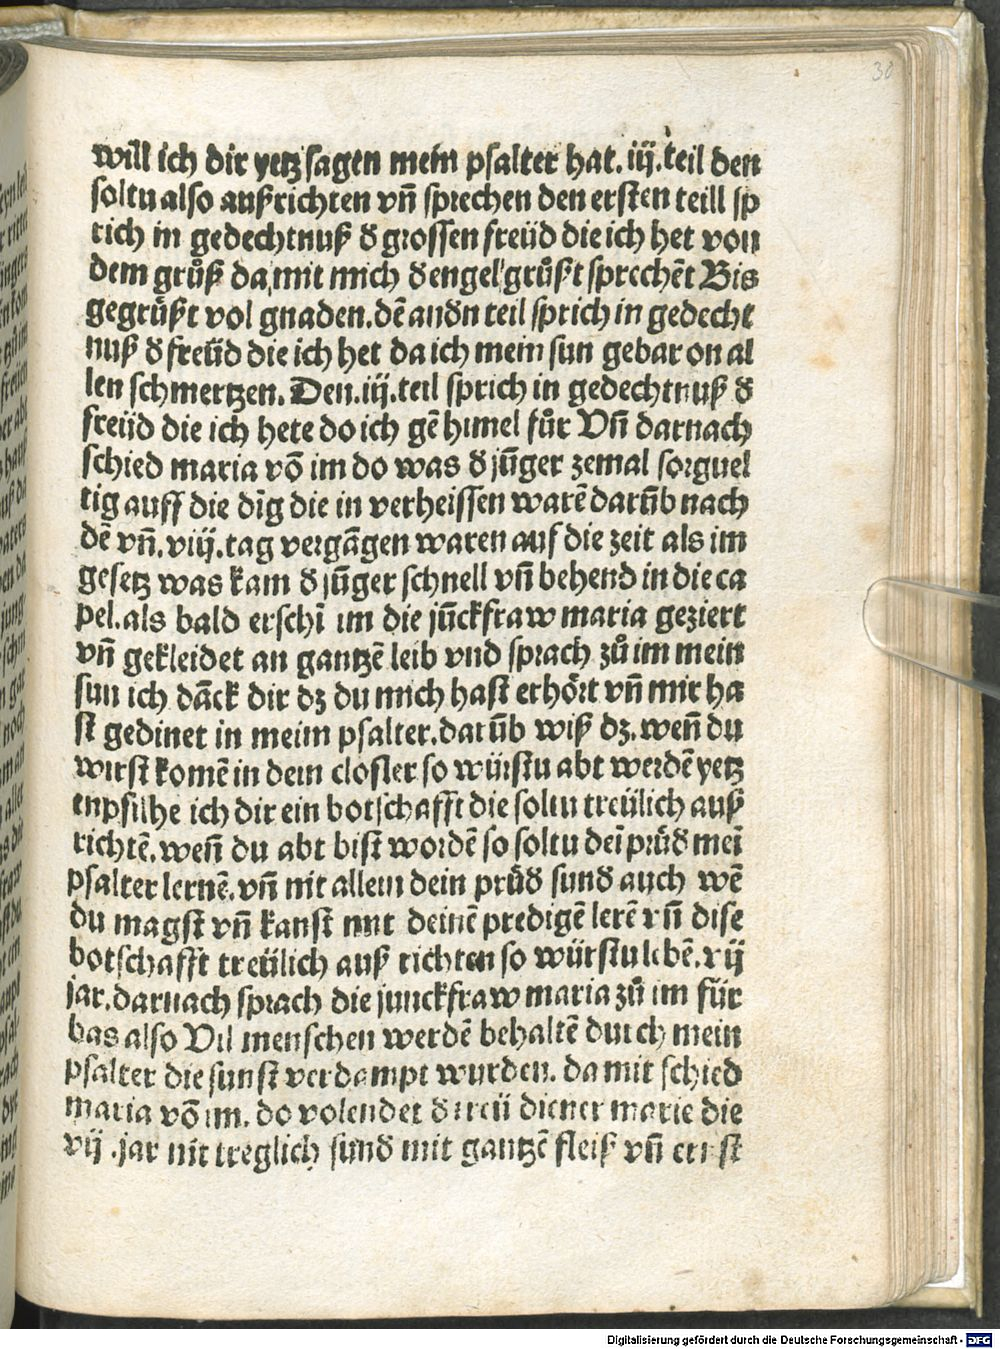 30
will ich dir yetz sagen mein psalter hat. iij. teil den
soltu also außrichten vñ sprechen den ersten teill sp
rich in gedechtnuß d̕ grossen freüd die ich het von
dem gruͦß da mit mich d̕ engel gruͦßt sprechẽt Bis
gegruͤßt vol gnaden. dẽ andn teil sprich in gedecht
nuß d̕ freüd die ich het da ich mein sun gebar on al
len schmertzen. Den. iij. teil sprich in gedechtnuß d̕
freüd die ich hete do ich gẽ himel fuͦr Vñ darnach
schied maria võ im do was d̕ jũger zemal sorguel
tig auff die dĩg die in verheissen warẽ darũb nach
dẽ vñ. viij. tag vergãgen waren auf die zeit als im
gesetz was kam d̕ jũger schnell vñ behend in die ca
pel. als bald erschĩ im die jũckfraw maria geziert
vñ gekleidet an gantzẽ leib vnd sprach zuͦ im mein
sun ich dãck dir dz du mich hast erhoͤrt vñ mir ha
st gedinet in meim psalter. darũb wiß dz. weñ du
wirst komẽ in dein closter so würstu abt werdẽ yetz
enpfilhe ich dir ein botschafft die soltu treülich auß
richtẽ. weñ du abt bist wordẽ so soltu deĩ pruͤd̕ meĩ
psalter lernẽ. vñ nit allein dein pruͤd̕ sund̕ auch wẽ
du magst vñ kanst mit deinẽ predigẽ lerẽ vñ dise
botschafft treülich auß richten so würstu lebẽ. vij
jar. darnach sprach die junckfraw maria zuͦ im für
bas also Vil menschen werdẽ behaltẽ durch mein
psalter die sunst verdampt wurden. da mit schied
maria võ im. do volendet d̕ treü diener marie die
vij. jar nit treglich sund̕ mit gantzẽ fleiß vñ ernst
Digitalisierung gefördert durch die Deutsche Forschungsgemeinschaft - DFG